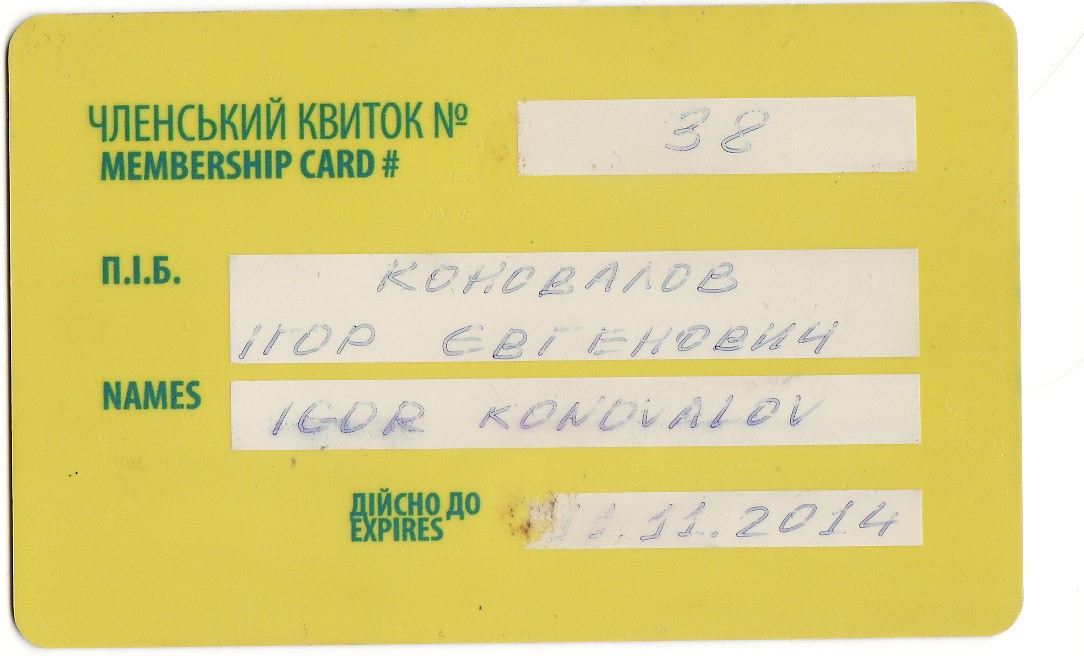 ЧЛЕНСЬКИЙ КВИТОК № 38
MEMBERSHIP CARD #
П.І.Б. КОНОВАЛОВ
ІГОР ЄВГЕНОВИЧ
NAMES IGOR KONOVALOV
ДІЙСНО ДО
EXPIRES 11.11.2014